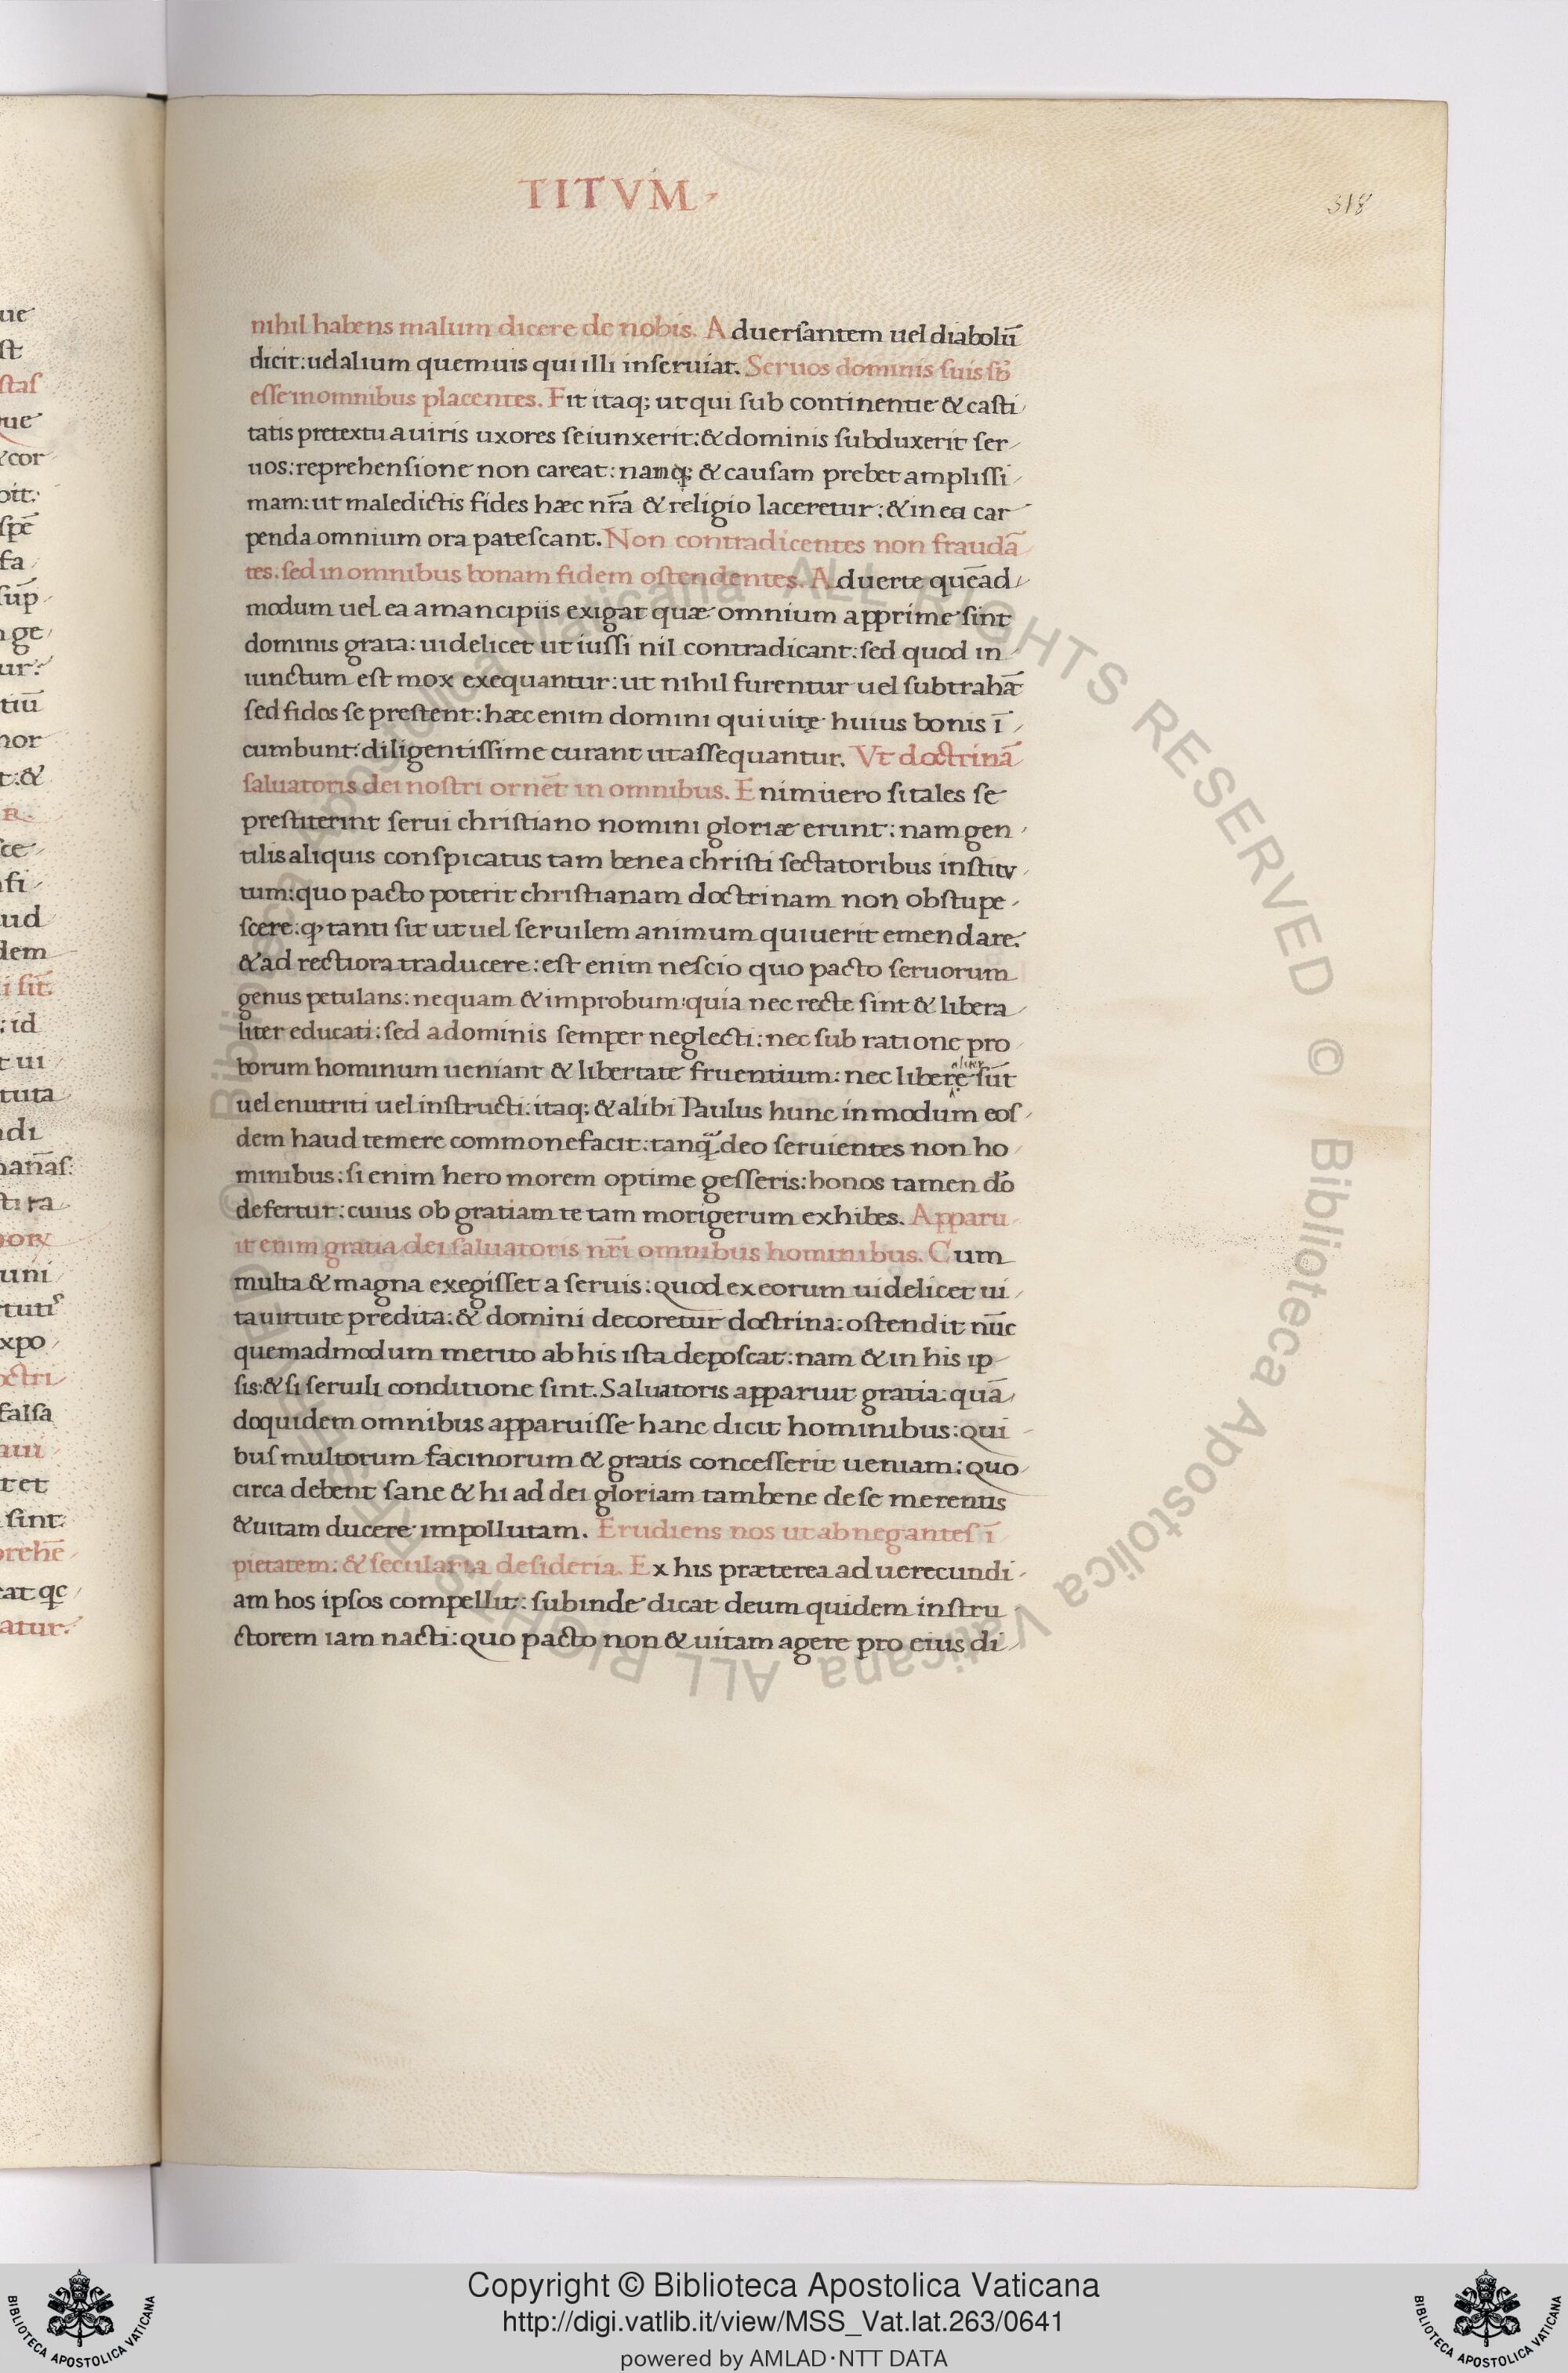 TITVM
318
nihil habens malum dicere de nobis. Aduersantem uel diabolū
dicit: uel alium quemuis qui illi inseruiat. Seruos dominis suis
esse in omnibus placentes. Fit itaq; ut qui sub continentie & casti
tatis pretextu a uiris uxores seiunxerit: & dominis subduxerit ser
uos: reprehensione non careat: namq; & causam prebet amplissi
mam: ut maledictis fides hæc nr̄a & religio laceretur: & in ea car
penda omnium ora patescant. Non contradicentes non fraudā
tes. sed in omnibus bonam fidem ostendentes. Aduerte quēad
modum uel ea a mancipiis exigat quæ omnium apprime sint
dominis grata: uidelicet ut iussi nil contradicant: sed quod in
iunctum est mox exequantur: ut nihil furentur uel subtrahāt
sed fidos se prestent: hæc enim domini qui uitę huius bonis ī
cumbunt: diligentissime curant ut assequantur. Vt doctrinā
saluatoris dei nostri ornēt in omnibus. Enimuero si tales se
prestiterint serui christiano nomini gloriæ erunt: nam gen
tilis aliquis conspicatus tam bene a christi sectatoribus institu
tum: quo pacto poterit christianam doctrinam non obstupe
scere: ꝙ tanti sit ut uel seruilem animum quiuerit emendare:
& ad rectiora traducere: est enim nescio quo pacto seruorum
genus petulans: nequam & improbum: quia nec recte sint & libera
liter educati: sed a dominis semper neglecti: nec sub ratione pro
borum hominum ueniant & libertate fruentium: nec libere sūt
uel enutriti uel instructi: itaq; & alibi Paulus hunc in modum eos
dem haud temere commonefacit: tanq̄ deo seruientes non ho
minibus: si enim hero morem optime gesseris: honos tamen dō
defertur: cuius ob gratiam te tam morigerum exhibes. Apparu
it enim gratia dei saluatoris nr̄i omnibus hominibus. Cum
multa & magna exegisset a seruis: quod ex eorum uidelicet ui
ta uirtute predita: & domini decoretur doctrina: ostendit nūc
quemadmodum merito ab his ista deposcat: nam & in his ip
sis: & si seruili conditione sint. Saluatoris apparuit gratia: quā
doquidem omnibus apparuisse hanc dicit hominibus: qui
bus multorum facinorum & gratis concesserit ueniam: quo
circa debent sane & hi ad dei gloriam tam bene de se merentis
& uitam ducere impollutam. Erudiens nos ut abnegantes ī
pietatem: & secularia desideria. Ex his præterea ad uerecundi
am hos ipsos compellit: subinde dicat deum quidem instru
ctorem iam nacti: quo pacto non & uitam agere pro eius di
Copyright © Biblioteca Apostolica Vaticana
http://digi.vatlib.it/view/MSS_Vat.lat.263/0641
powered by AMLAD·NTT DATA